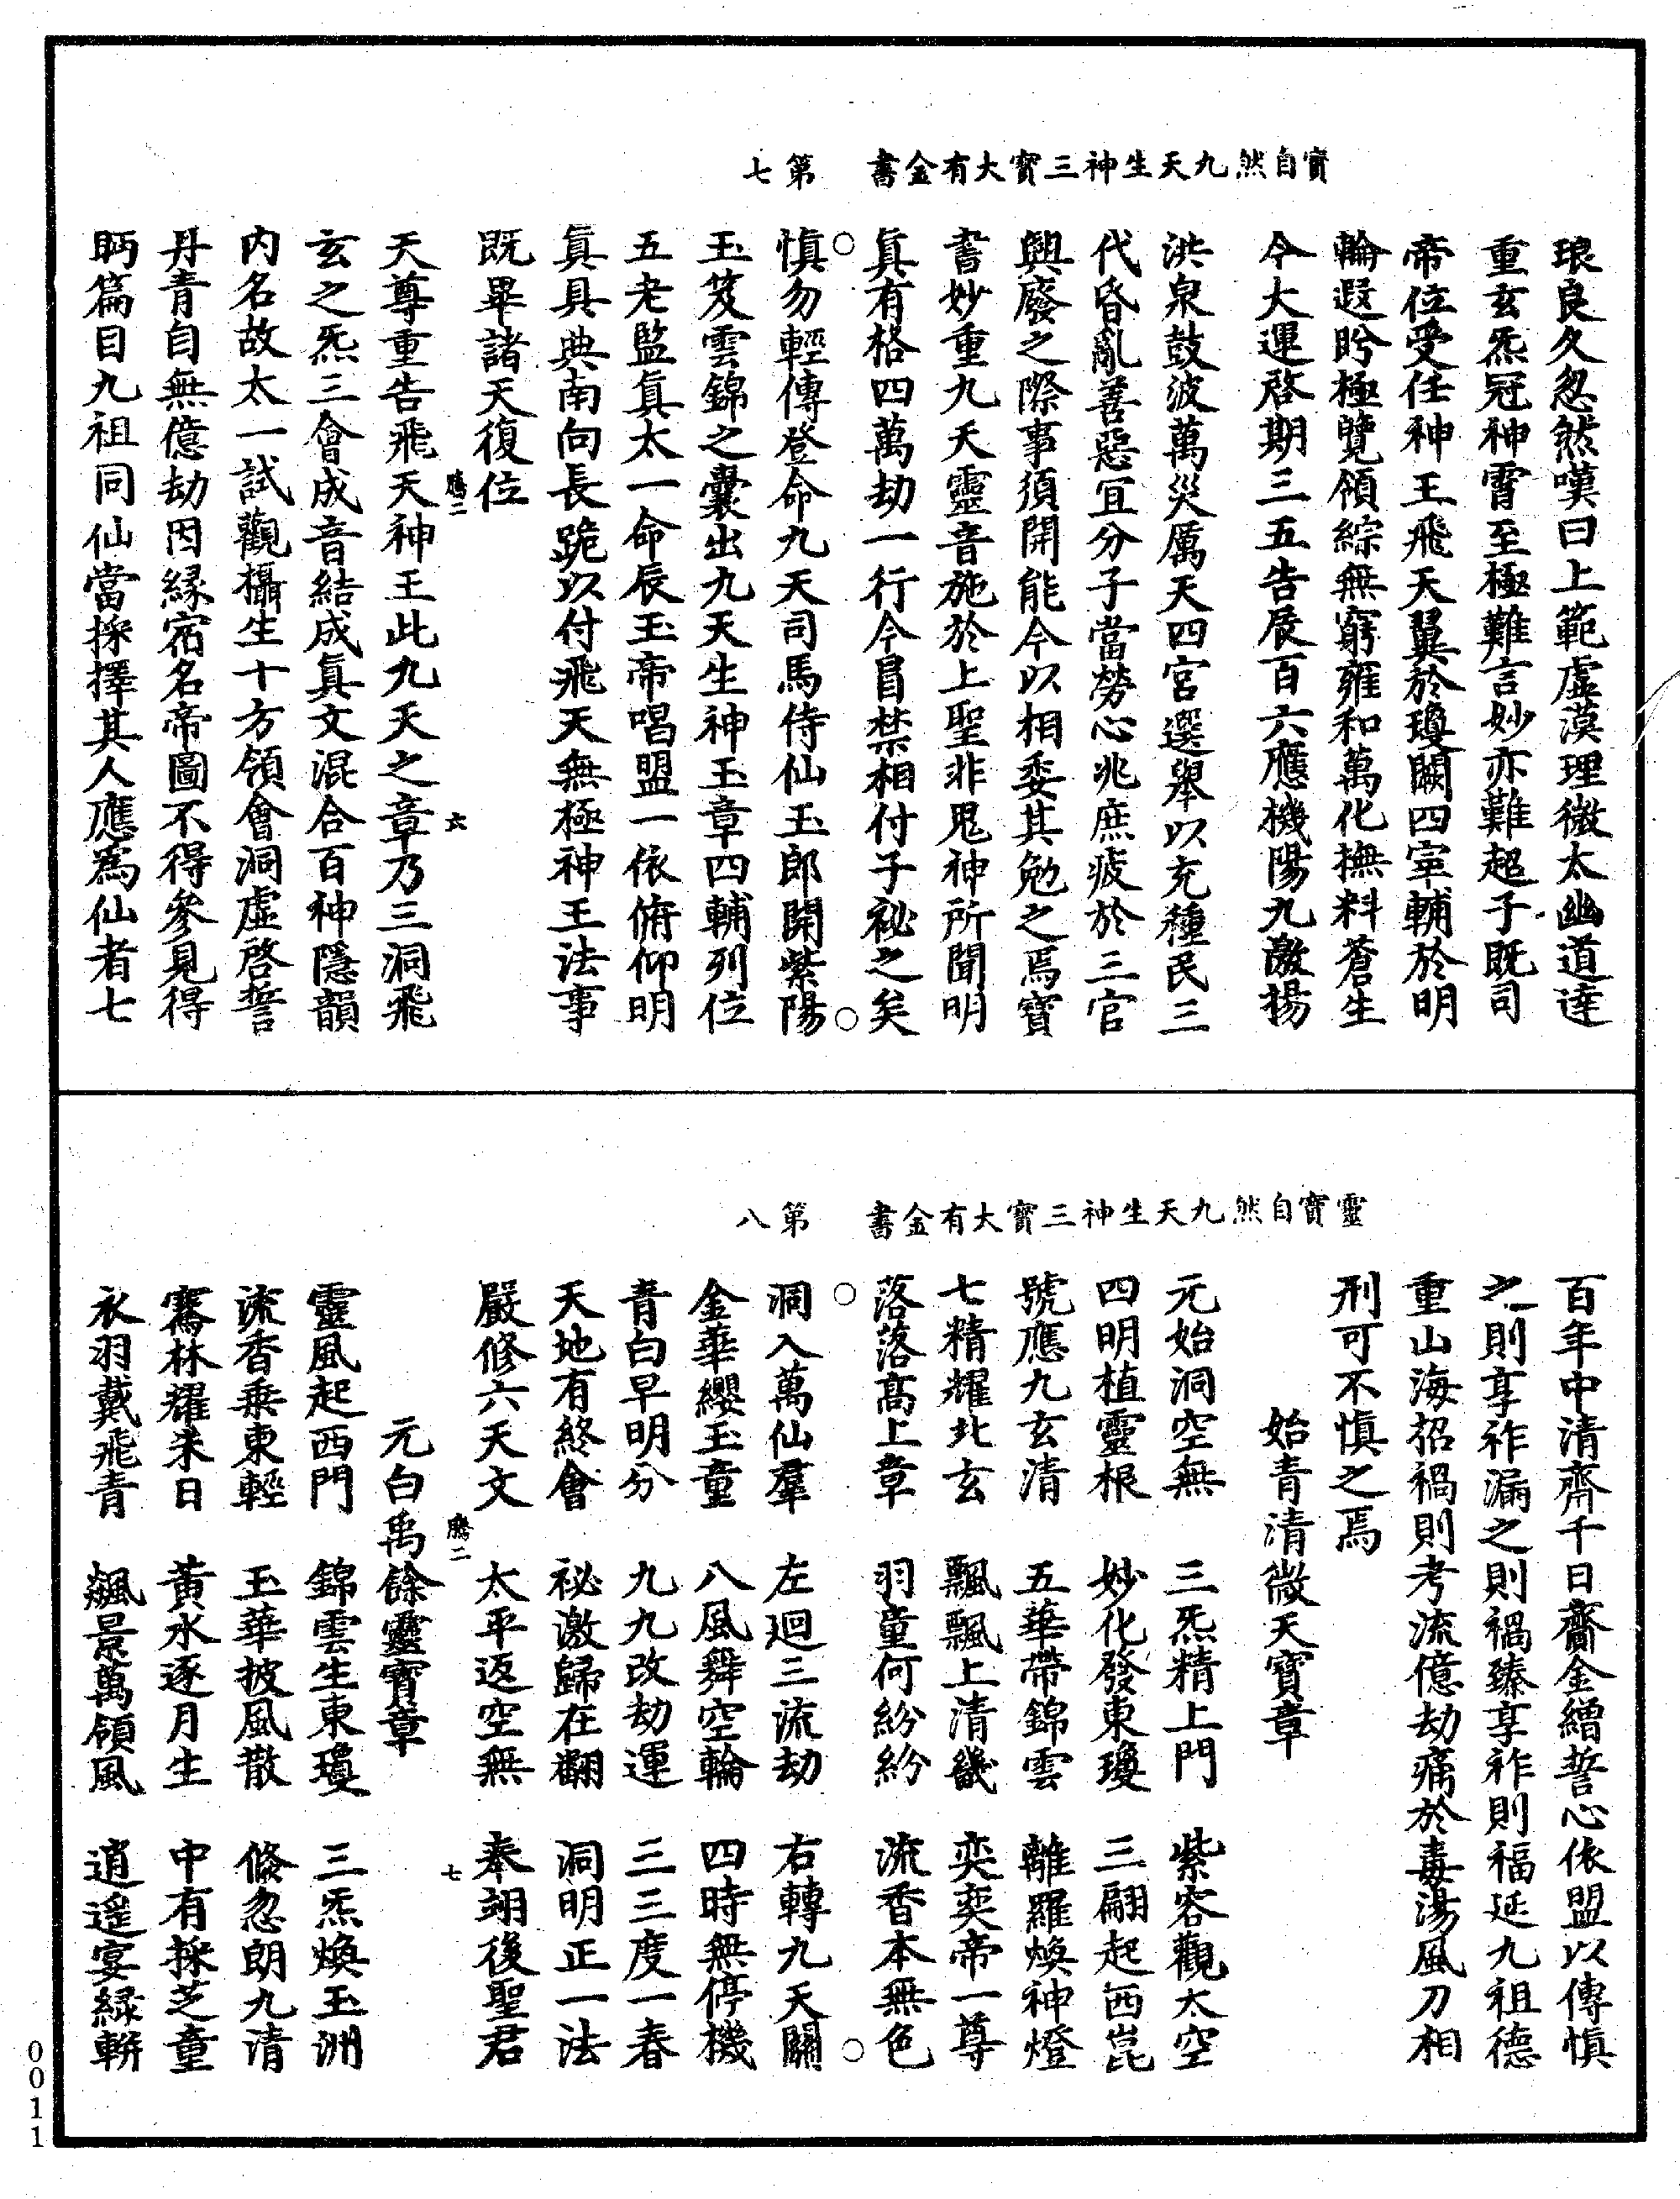 寳自然九天生神三寳大有金書　第七
琅良久忽然嘆曰上範虛漠理微太幽道達
重玄炁冠神霄至極難言妙亦難超子既司
帝位受任神王飛天翼於瓊闕四宰輔於明
輪遐盻極覽領綜無窮雍和萬化撫料蒼生
今大運啓期三五告辰百六應機陽九激揚
洪泉鼓波萬災厲天四宮選舉以充種民三
代昏亂善惡宜分子當勞心兆庶疲於三官
興廢之際事須開能今以相委其勉之焉寳
書妙重九天靈音施於上聖非鬼神所聞明
眞有格四萬劫一行今冒禁相付子祕之矣
愼勿輕傳登命九天司馬侍仙玉郎開紫陽
玉笈雲錦之囊出九天生神玉章四輔列位
五老監眞太一命辰玉帝唱盟一依俯仰明
眞具典南向長跪以付飛天無極神王法事
既畢諸天復位
鹰二　六
天尊重告飛天神王此九天之章乃三洞飛
玄之炁三會成音結成眞文混合百神隱韻
内名故太一試觀攝生十方領會洞虛啓誓
丹青自無億劫因縁宿名帝圖不得參見得
眄篇目九祖同仙當採擇其人應爲仙者七
靈寳自然九天生神三寳大有金書　第八
百年中清齋千日齎金繒誓心依盟以傳愼
之則享祚漏之則禍臻享祚則福延九祖德
重山海招禍則考流億劫痛於毒湯風刀相
刑可不愼之焉
始青清微天寳章
元始洞空無　三炁精上門　紫容觀太空
四明植靈根　妙化發東瓊　三翩起西崑
號應九玄清　五華帶錦雲　離羅煥神燈
七精耀北玄　飄飄上清畿　奕奕帝一尊
落落高上章　羽童何紛紛　流香本無色
洞入萬仙羣　左迴三流劫　右轉九天關
金華纓玉童　八風舞空輪　四時無停機
青白早明分　九九改劫運　三三度一春
天地有終會　祕激歸在翻　洞明正一法
嚴修六天文　太平返空無　奉翊後聖君
鹰二　七
元白禹餘靈寳章
靈風起西門　錦雲生東瓊　三炁煥玉洲
流香乗東輕　玉華披風散　倏忽朗九清
騫林耀朱日　黃水逐月生　中有採芝童
衣羽戴飛青　飆景萬領風　逍遥宴緑軿
0011